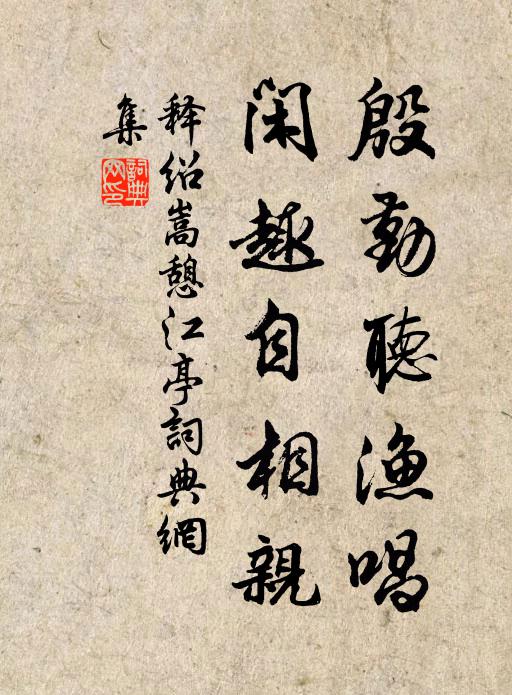 殷勤聽漁唱
閑趣自相親
释绍嵩憩江亭詞典網
集
詞典網印